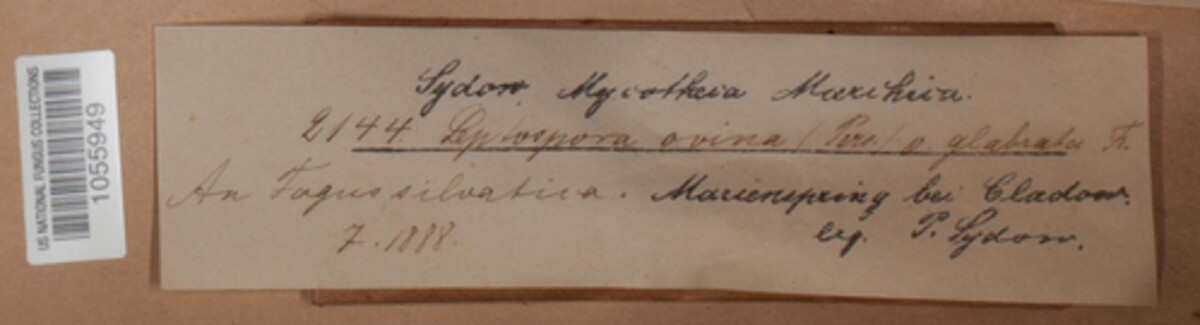 US NATIONAL FUNGUS COLLECTIONS
1055949
Sydow, Mycotheca Marchica.
2144 Leptospora ovina (Pers.) v. glabrata Fr.
An Fagus silvatica. Marienspring bei Cladow.
7. 1888. leg. P. Sydow.